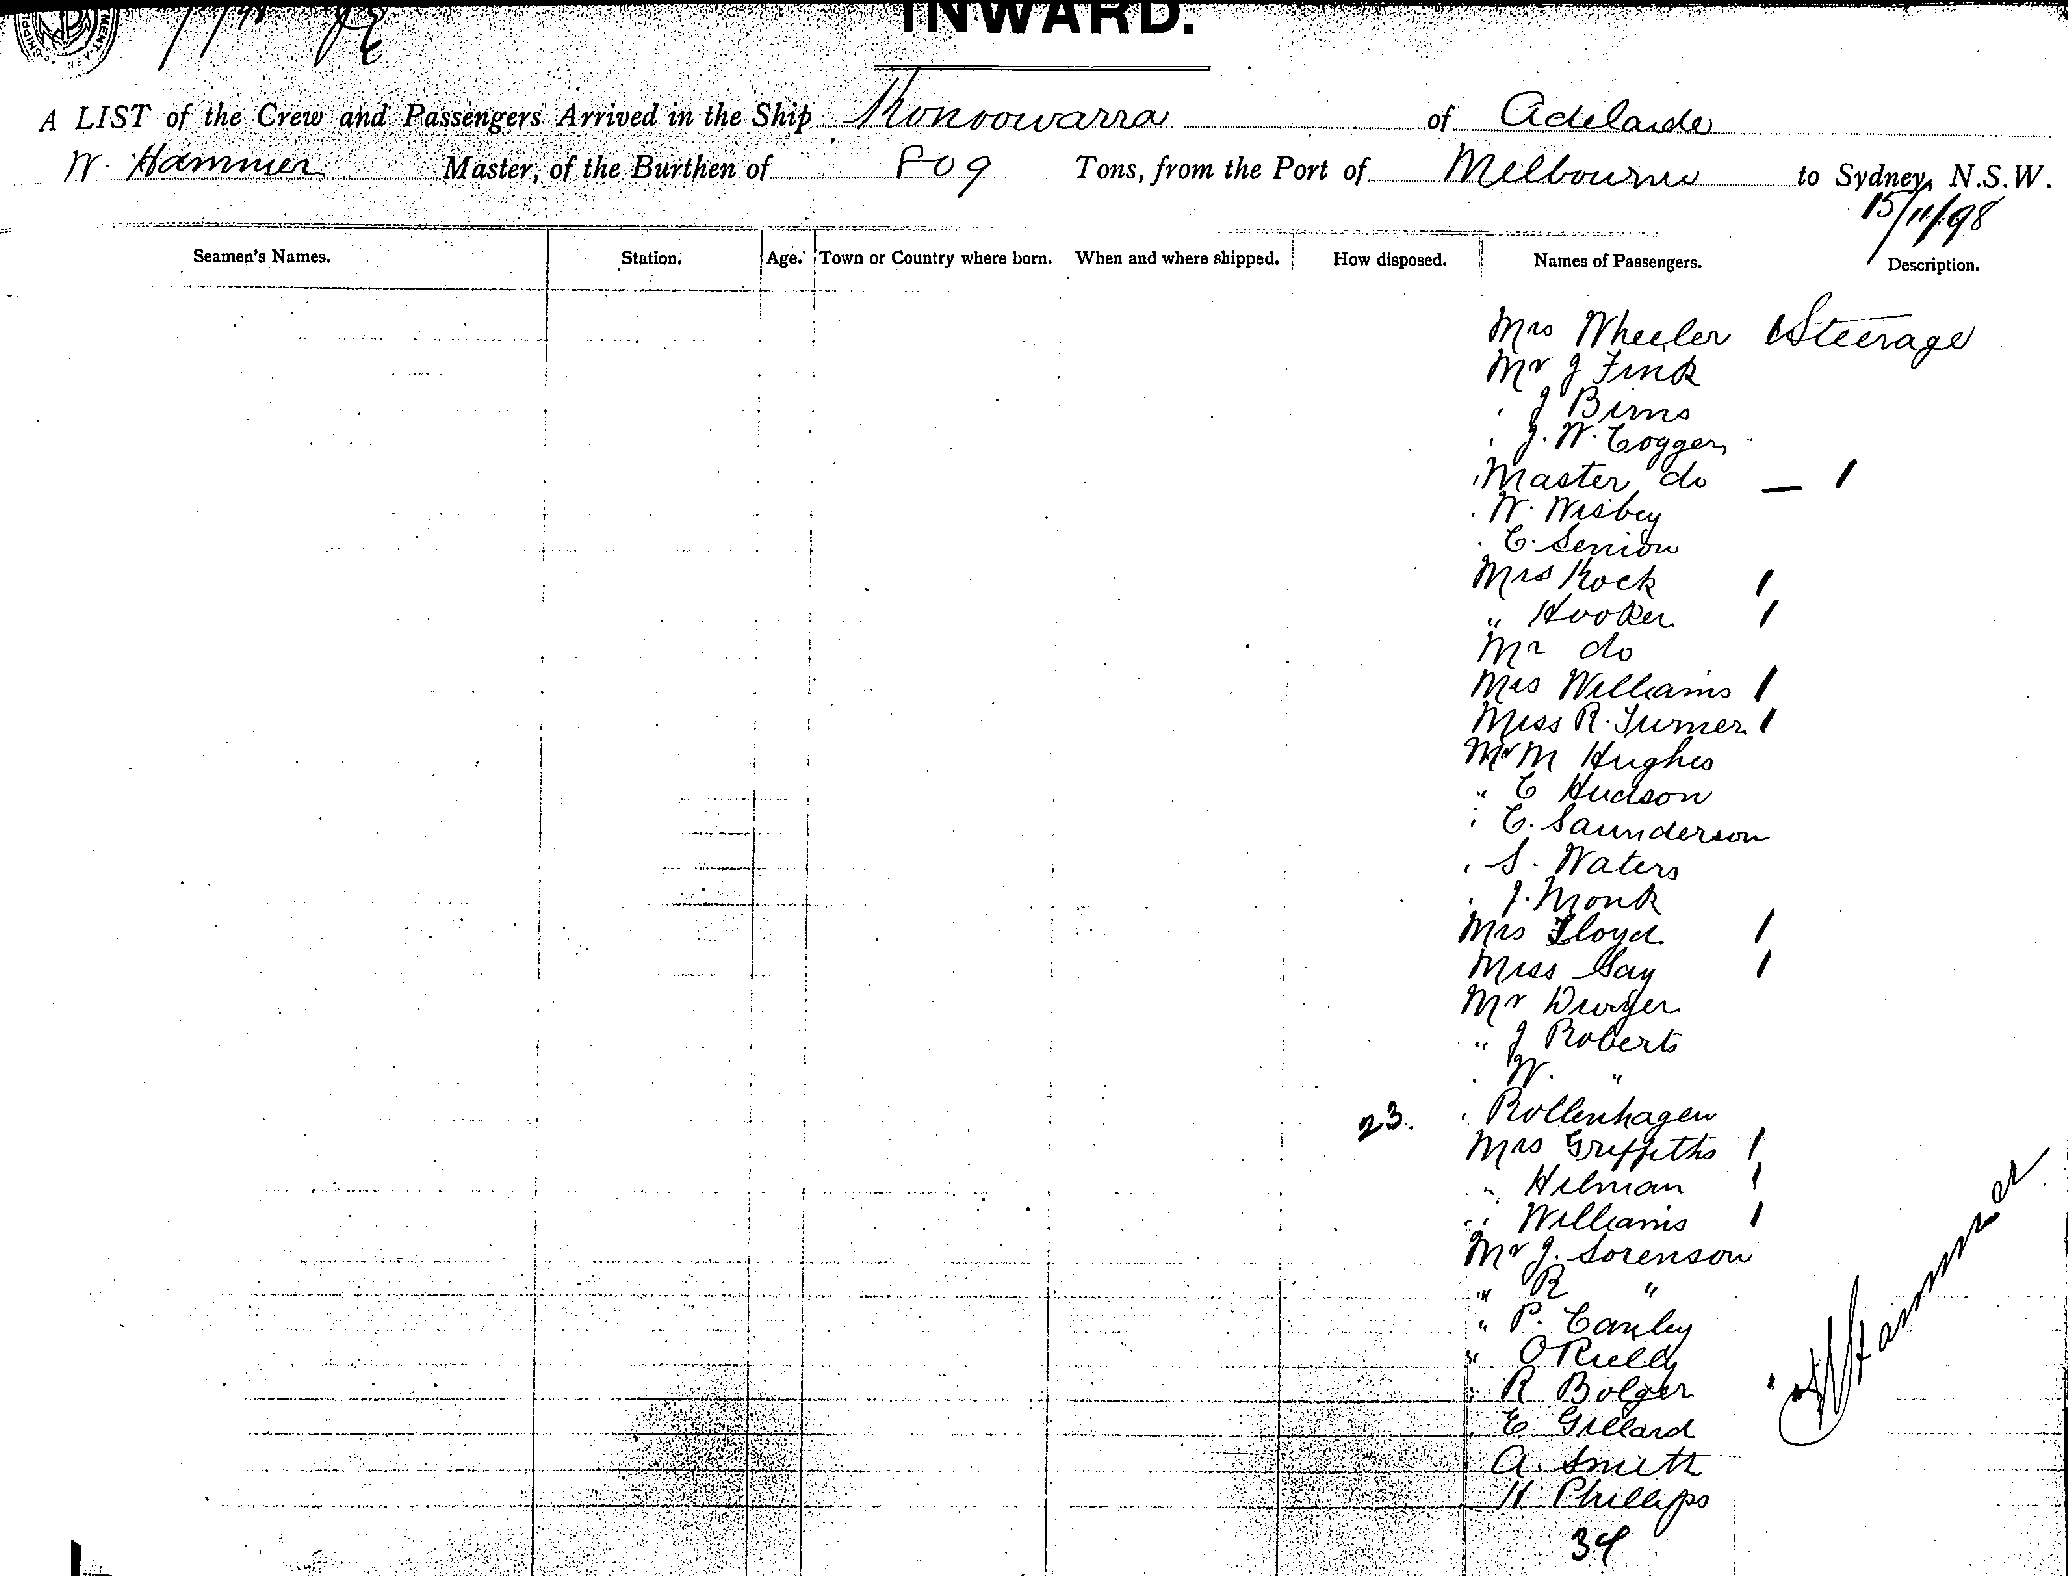 INWARD.
A LIST of the Crew and Passengers Arrived in the Ship Konoowarra of Adelaide
W. Hammer Master, of the Burthen of 809 Tons, from the Port of Melbourne to Sydney, N.S.W.
15/11/98
Seamen's Names. Station. Age. Town or Country where born. When and where shipped. How disposed. Names of Passengers. Description.
Mrs Wheeler 1 Steerage
Mr J Fink
" J Binns
" J. W. Cogger
" Master do — 1
" W. Wisbey
" C. Senior
Mrs Rock 1
" Hooker 1
Mr do
Mrs Williams 1
Miss R. Turner 1
Mr M Hughes
" C Hudson
" C. Saunderson
" S. Waters
" J. Monk
Mrs Lloyd 1
Miss Gay 1
Mr Dwyer
" J Roberts
" W. "
23. " Rollenhagen
Mrs Griffiths 1
" Hilman 1
" Williams 1
Mr J. Sorenson
" R "
" P. Canley
" O Reilly
" R Bolger
" E Gillard
A. Smith
H Phillips
34
W Hammer